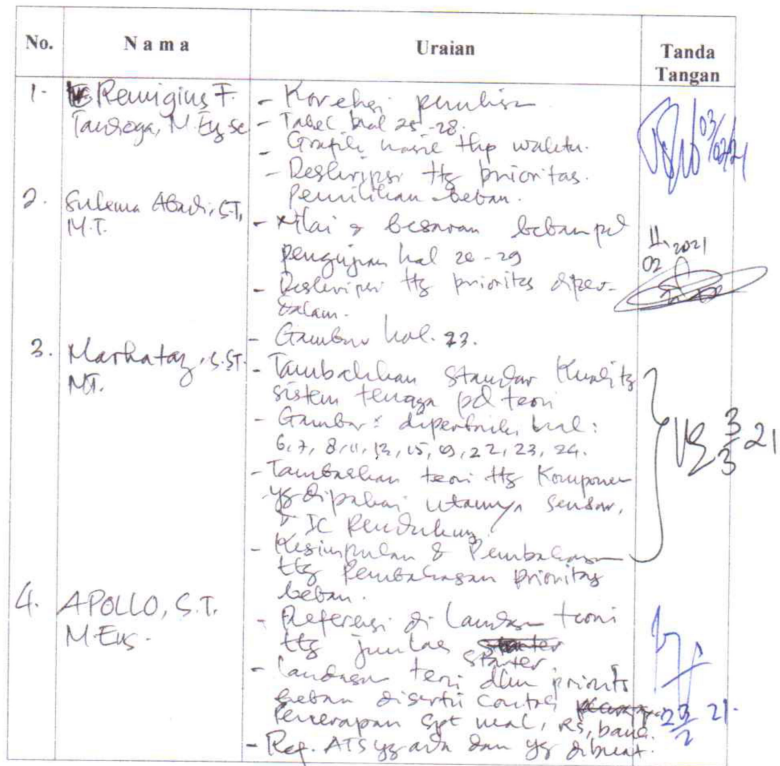 No. N a m a Uraian Tanda Tangan
1. Remigius F. Tandioga, M.Eng.Sc
- Koreksi penulisan
- Tabel hal 25-28.
- Grafik hasil thp waktu.
- Deskripsi ttg prioritas
Pemilihan beban.
2. Sulema Abadi, ST,
M.T.
- Nilai & besaran beban pd
pengujian hal 20-29
- Deskripsi ttg prioritas diper-
dalam.
- Gambar hal. 23.
11 2021
02
3. Marhatang, S.ST.
MT.
- Tambahkan Standar Kualits
sistem tenaga pd teori
- Gambar: diperbaiki hal:
6, 7, 8, 11, 13, 15, 19, 22, 23, 24.
- Tambahkan teori ttg Komponen
yg dipakai utamya sensor,
IC Pendukung
- Kesimpulan & Pembahasan
ttg Pembahasan prioritas
beban.
3/3 21
4. APOLLO, S.T.
M.Eng.
- Referensi di Landasan teori
ttg jumlas
starter.
- Landasan teori dlm priorits
beban disertai contoh
Penerapan spt mal, RS, bank.
- Ref. ATS yg ada dan yg dibuat.
23/2 21.